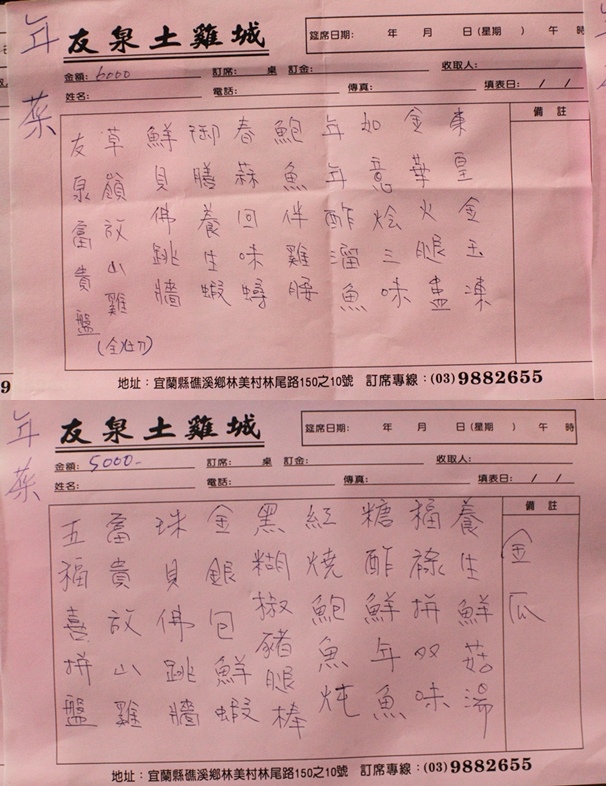 年菜
友泉土雞城
筵席日期: 年 月 日(星期 ) 午 時
金額: 6000 訂席: 桌 訂金: 收取人:
姓名: 電話: 傳真: 填表日: / /
備註
友泉富貴盤
草嶺放山雞
鮮貝佛跳牆
御膳養生蝦
春蒜回味蟳
鮑魚伴雞腰
年年酢溜魚
如意燴三味
金華火腿盅
東皇金玉凍
地址：宜蘭縣礁溪鄉林美村林尾路150之10號 訂席專線：(03)9882655
年菜
友泉土雞城
筵席日期: 年 月 日(星期 ) 午 時
金額: 5000- 訂席: 桌 訂金: 收取人:
姓名: 電話: 傳真: 填表日: / /
備註
五福喜拼盤
富貴放山雞
珠貝佛跳牆
金銀包鮮蝦
黑糊椒豬腿棒
紅燒鮑魚炖
糖酢鮮年魚
福祿拼双味
養生鮮菇湯
金瓜
地址：宜蘭縣礁溪鄉林美村林尾路150之10號 訂席專線：(03)9882655